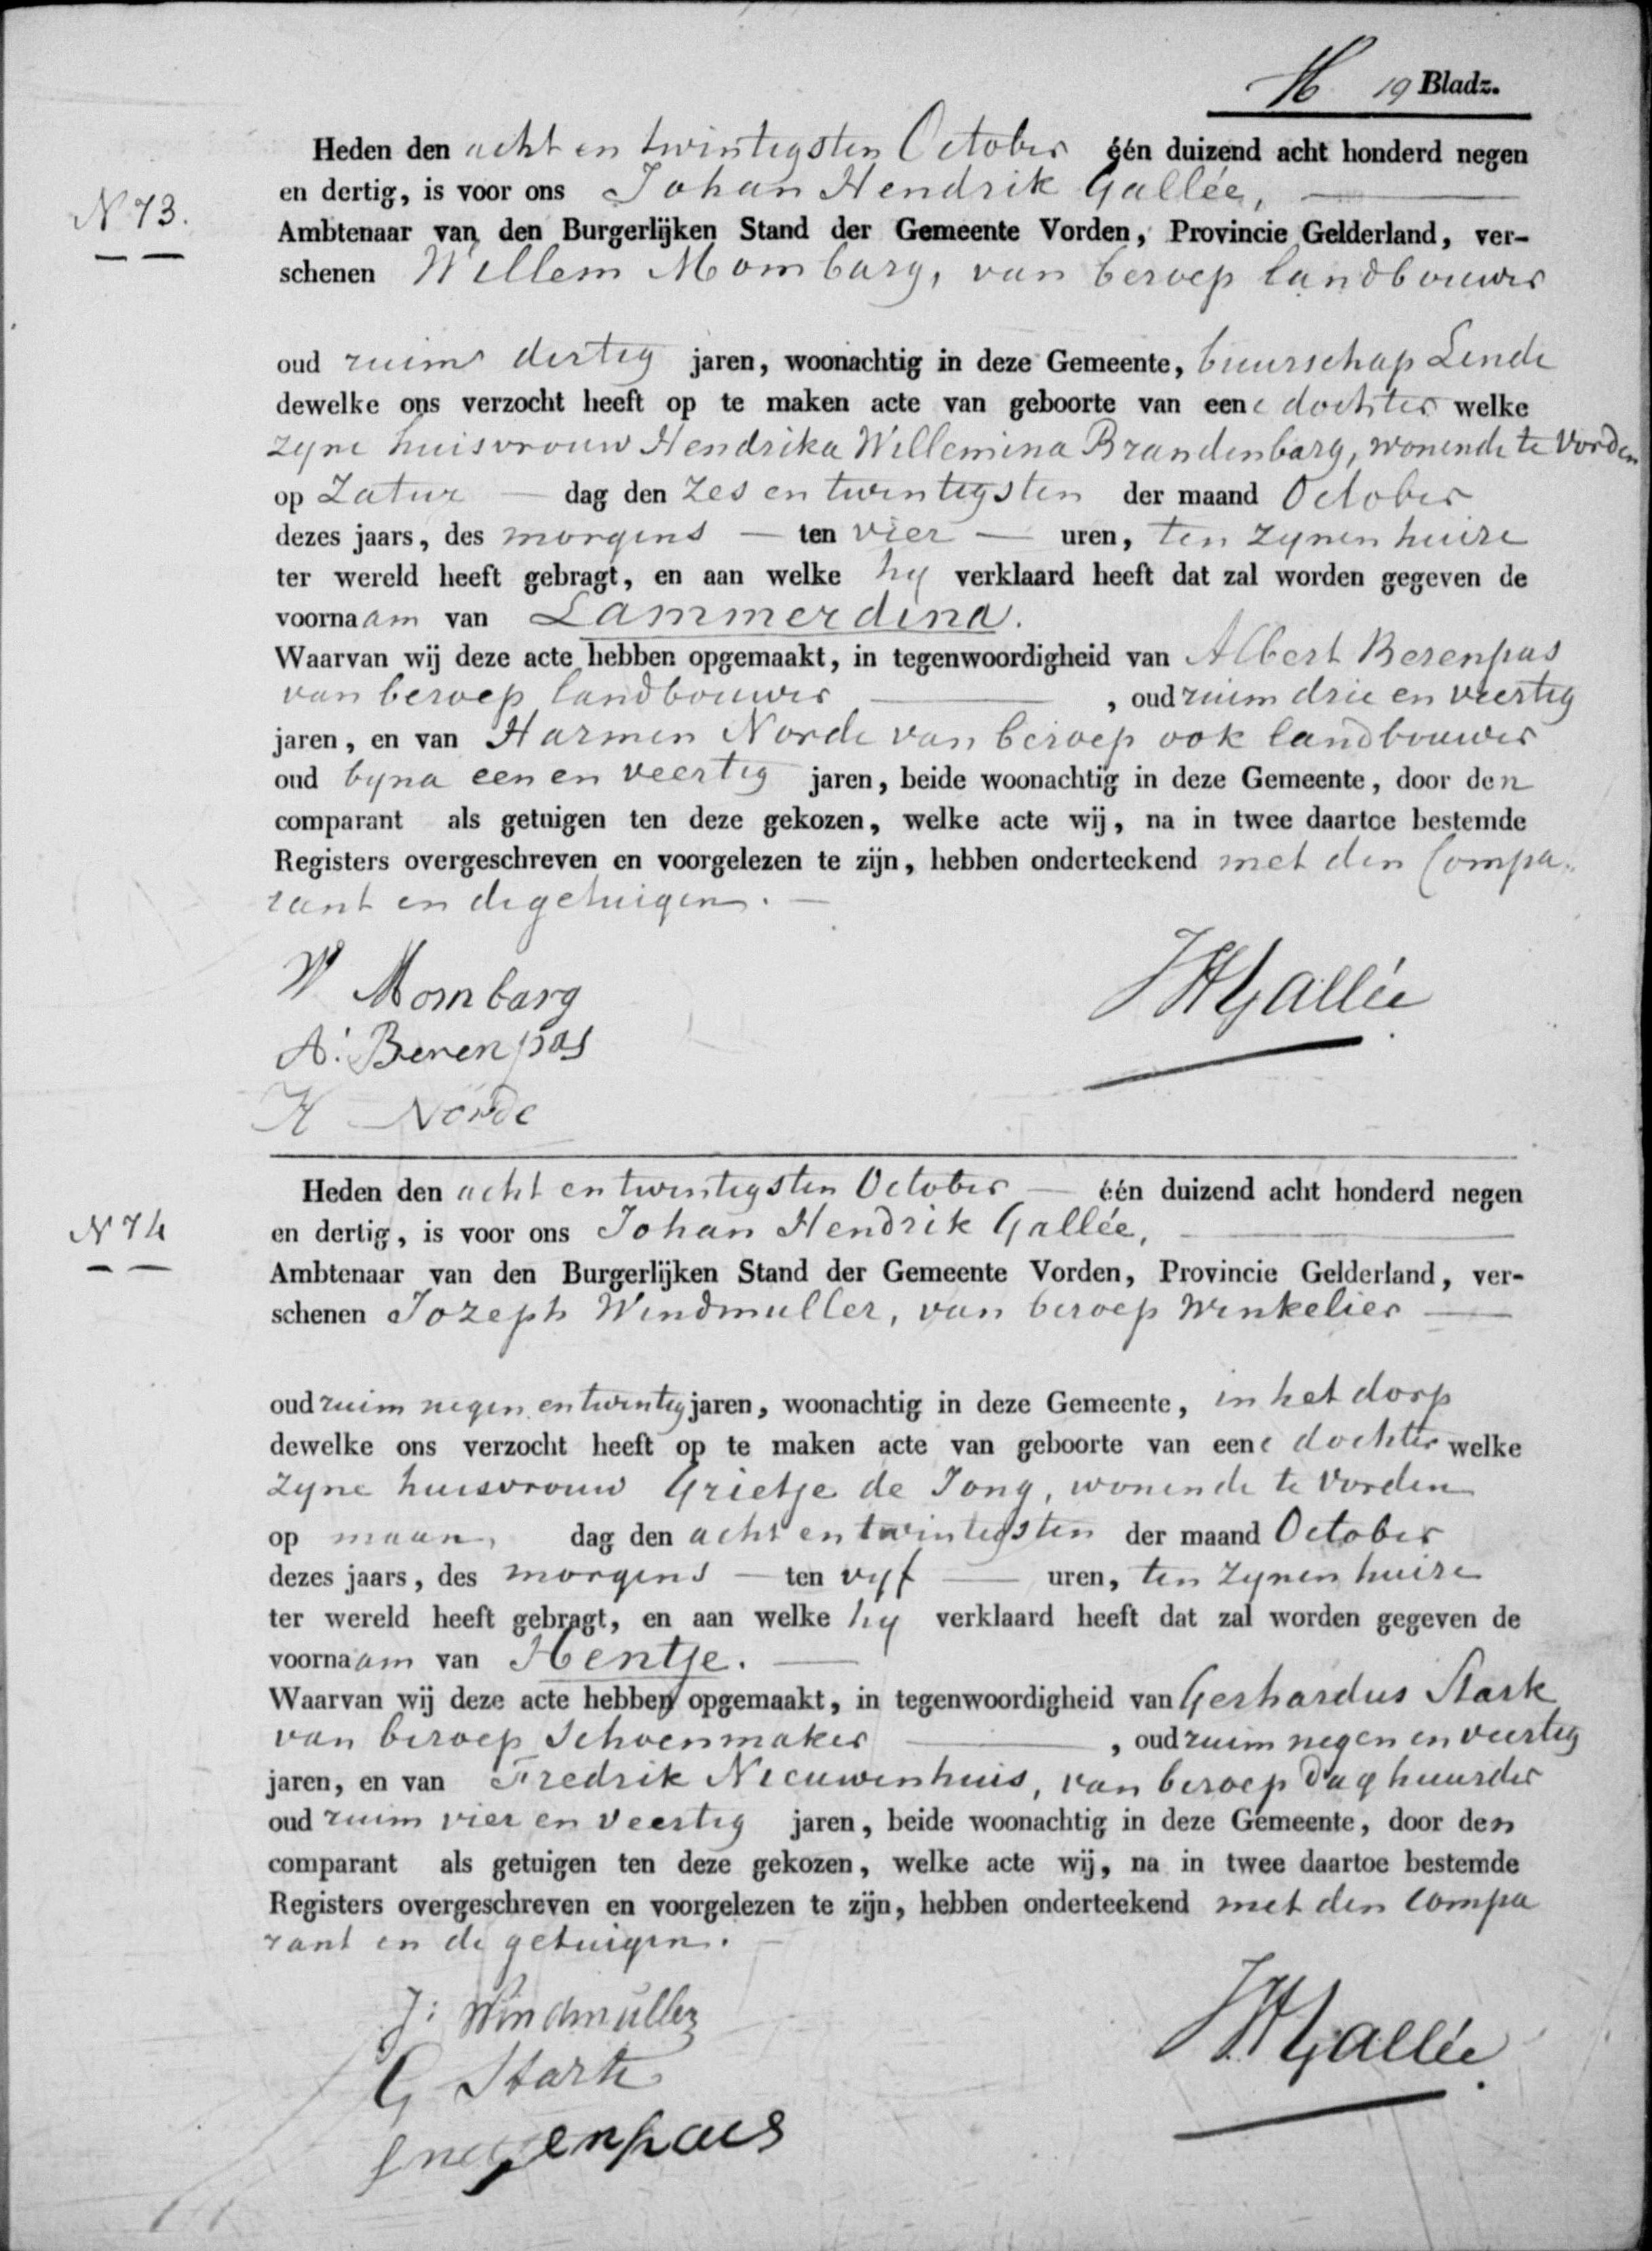 19 Bladz.
Heden den acht en twintigsten October één duizend acht honderd negen
N 73.
en dertig, is voor ons Johan Hendrik Gallée,
Ambtenaar van den Burgerlijken Stand der Gemeente Vorden, Provincie Gelderland, ver-
schenen Willem Mombarg, van beroep landbouwer
oud ruim dertig jaren, woonachtig in deze Gemeente, buurschap Linde
dewelke ons verzocht heeft op te maken acte van geboorte van eene dochter welke
zyne huisvrouw Hendrika Willemina Brandenbarg, wonende te Vorden
op Zatur — dag den zes en twintigsten der maand October
dezes jaars, des morgens — ten vier — uren, ten zynen huize
ter wereld heeft gebragt, en aan welke hy verklaard heeft dat zal worden gegeven de
voornaam van Lammerdina.
Waarvan wij deze acte hebben opgemaakt, in tegenwoordigheid van Albert Berenpas
van beroep landbouwer —, oud ruim drie en veertig
jaren, en van Harmen Norde van beroep ook landbouwer
oud byna een en veertig jaren, beide woonachtig in deze Gemeente, door den
comparant als getuigen ten deze gekozen, welke acte wij, na in twee daartoe bestemde
Registers overgeschreven en voorgelezen te zijn, hebben onderteekend met den Compa„
rant en de getuigen. —
W Mombarg
JHGallée
A: Berenpas
H Norde
Heden den acht en twintigsten October — één duizend acht honderd negen
N 74
en dertig, is voor ons Johan Hendrik Gallée,
Ambtenaar van den Burgerlijken Stand der Gemeente Vorden, Provincie Gelderland, ver-
schenen Jozeph Windmuller, van beroep Winkelier —
oud ruim negen en twintig jaren, woonachtig in deze Gemeente, in het dorp
dewelke ons verzocht heeft op te maken acte van geboorte van eene dochter welke
zyne huisvrouw Grietje de Jong, wonende te Vorden
op maan, dag den acht en twintigsten der maand October
dezes jaars, des morgens — ten vyf — uren, ten zynen huize
ter wereld heeft gebragt, en aan welke hy verklaard heeft dat zal worden gegeven de
voornaam van Hentje. —
Waarvan wij deze acte hebben opgemaakt, in tegenwoordigheid van Gerhardus Stark
van beroep Schoenmaker —, oud ruim negen en veertig
jaren, en van Fredrik Nieuwenhuis, van beroep daghuurder
oud ruim vier en veertig jaren, beide woonachtig in deze Gemeente, door den
comparant als getuigen ten deze gekozen, welke acte wij, na in twee daartoe bestemde
Registers overgeschreven en voorgelezen te zijn, hebben onderteekend met den Compa
rant en de getuigen. —
J: Windmuller
JHGallée
G Stark